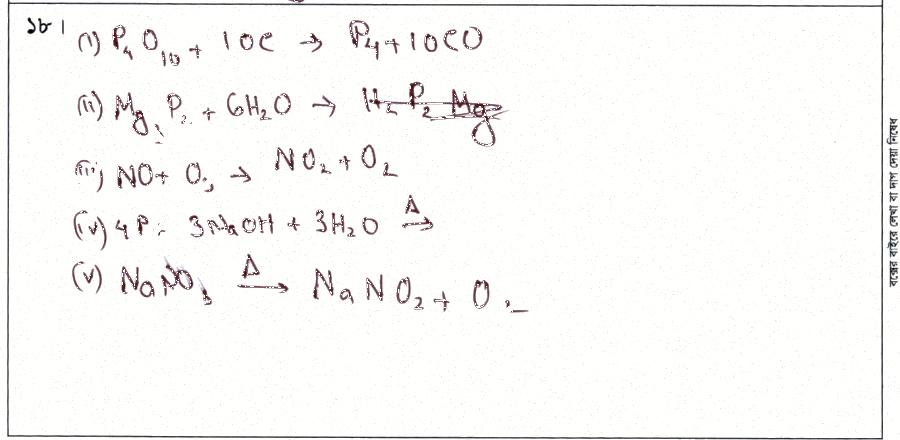 ১৮।
(i) P₄O₁₀ + 10C → P₄ + 10CO
(ii) Mg₃P₂ + 6H₂O →
(iii) NO + O₃ → NO₂ + O₂
(iv) 4P + 3NaOH + 3H₂O →Δ
(v) NaNO₃ →Δ NaNO₂ + O₂
বক্সের বাইরে লেখা বা দাগ দেয়া নিষেধ